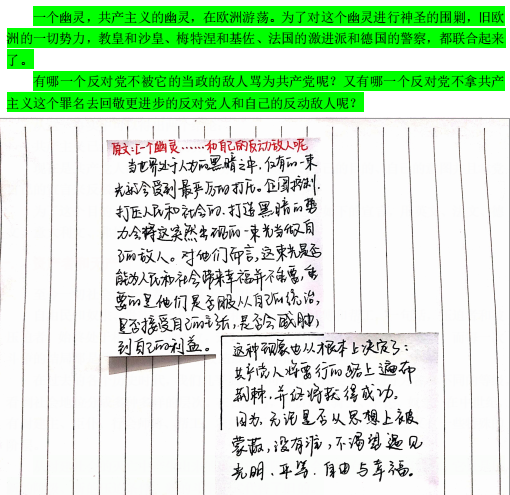 一个幽灵，共产主义的幽灵，在欧洲游荡。为了对这个幽灵进行神圣的围剿，旧欧
洲的一切势力，教皇和沙皇、梅特涅和基佐、法国的激进派和德国的警察，都联合起来
了。
有哪一个反对党不被它的当政的敌人骂为共产党呢？又有哪一个反对党不拿共产
主义这个罪名去回敬更进步的反对党人和自己的反动敌人呢？
原文:[一个幽灵……和自己的反动敌人呢
当世界处于人为的黑暗之中,仅有的一束
光都会受到最严厉的打压。企图控制、
打压人民和社会的、打造黑暗的势
力会将这突然出现的一束光当做自
己的敌人。对他们而言,这束光是否
能为人民和社会带来幸福并不重要,重
要的是他们是否服从自己的统治,
是否接受自己的,是否会威胁
到自己的利益。
这种现象也从根本上决定了:
共产党人将要行的路上遍布
荆棘,并必将获得成功。
因为,无论是否从思想上被
蒙蔽,没有谁,不渴望遇见
光明、平等、自由与幸福。